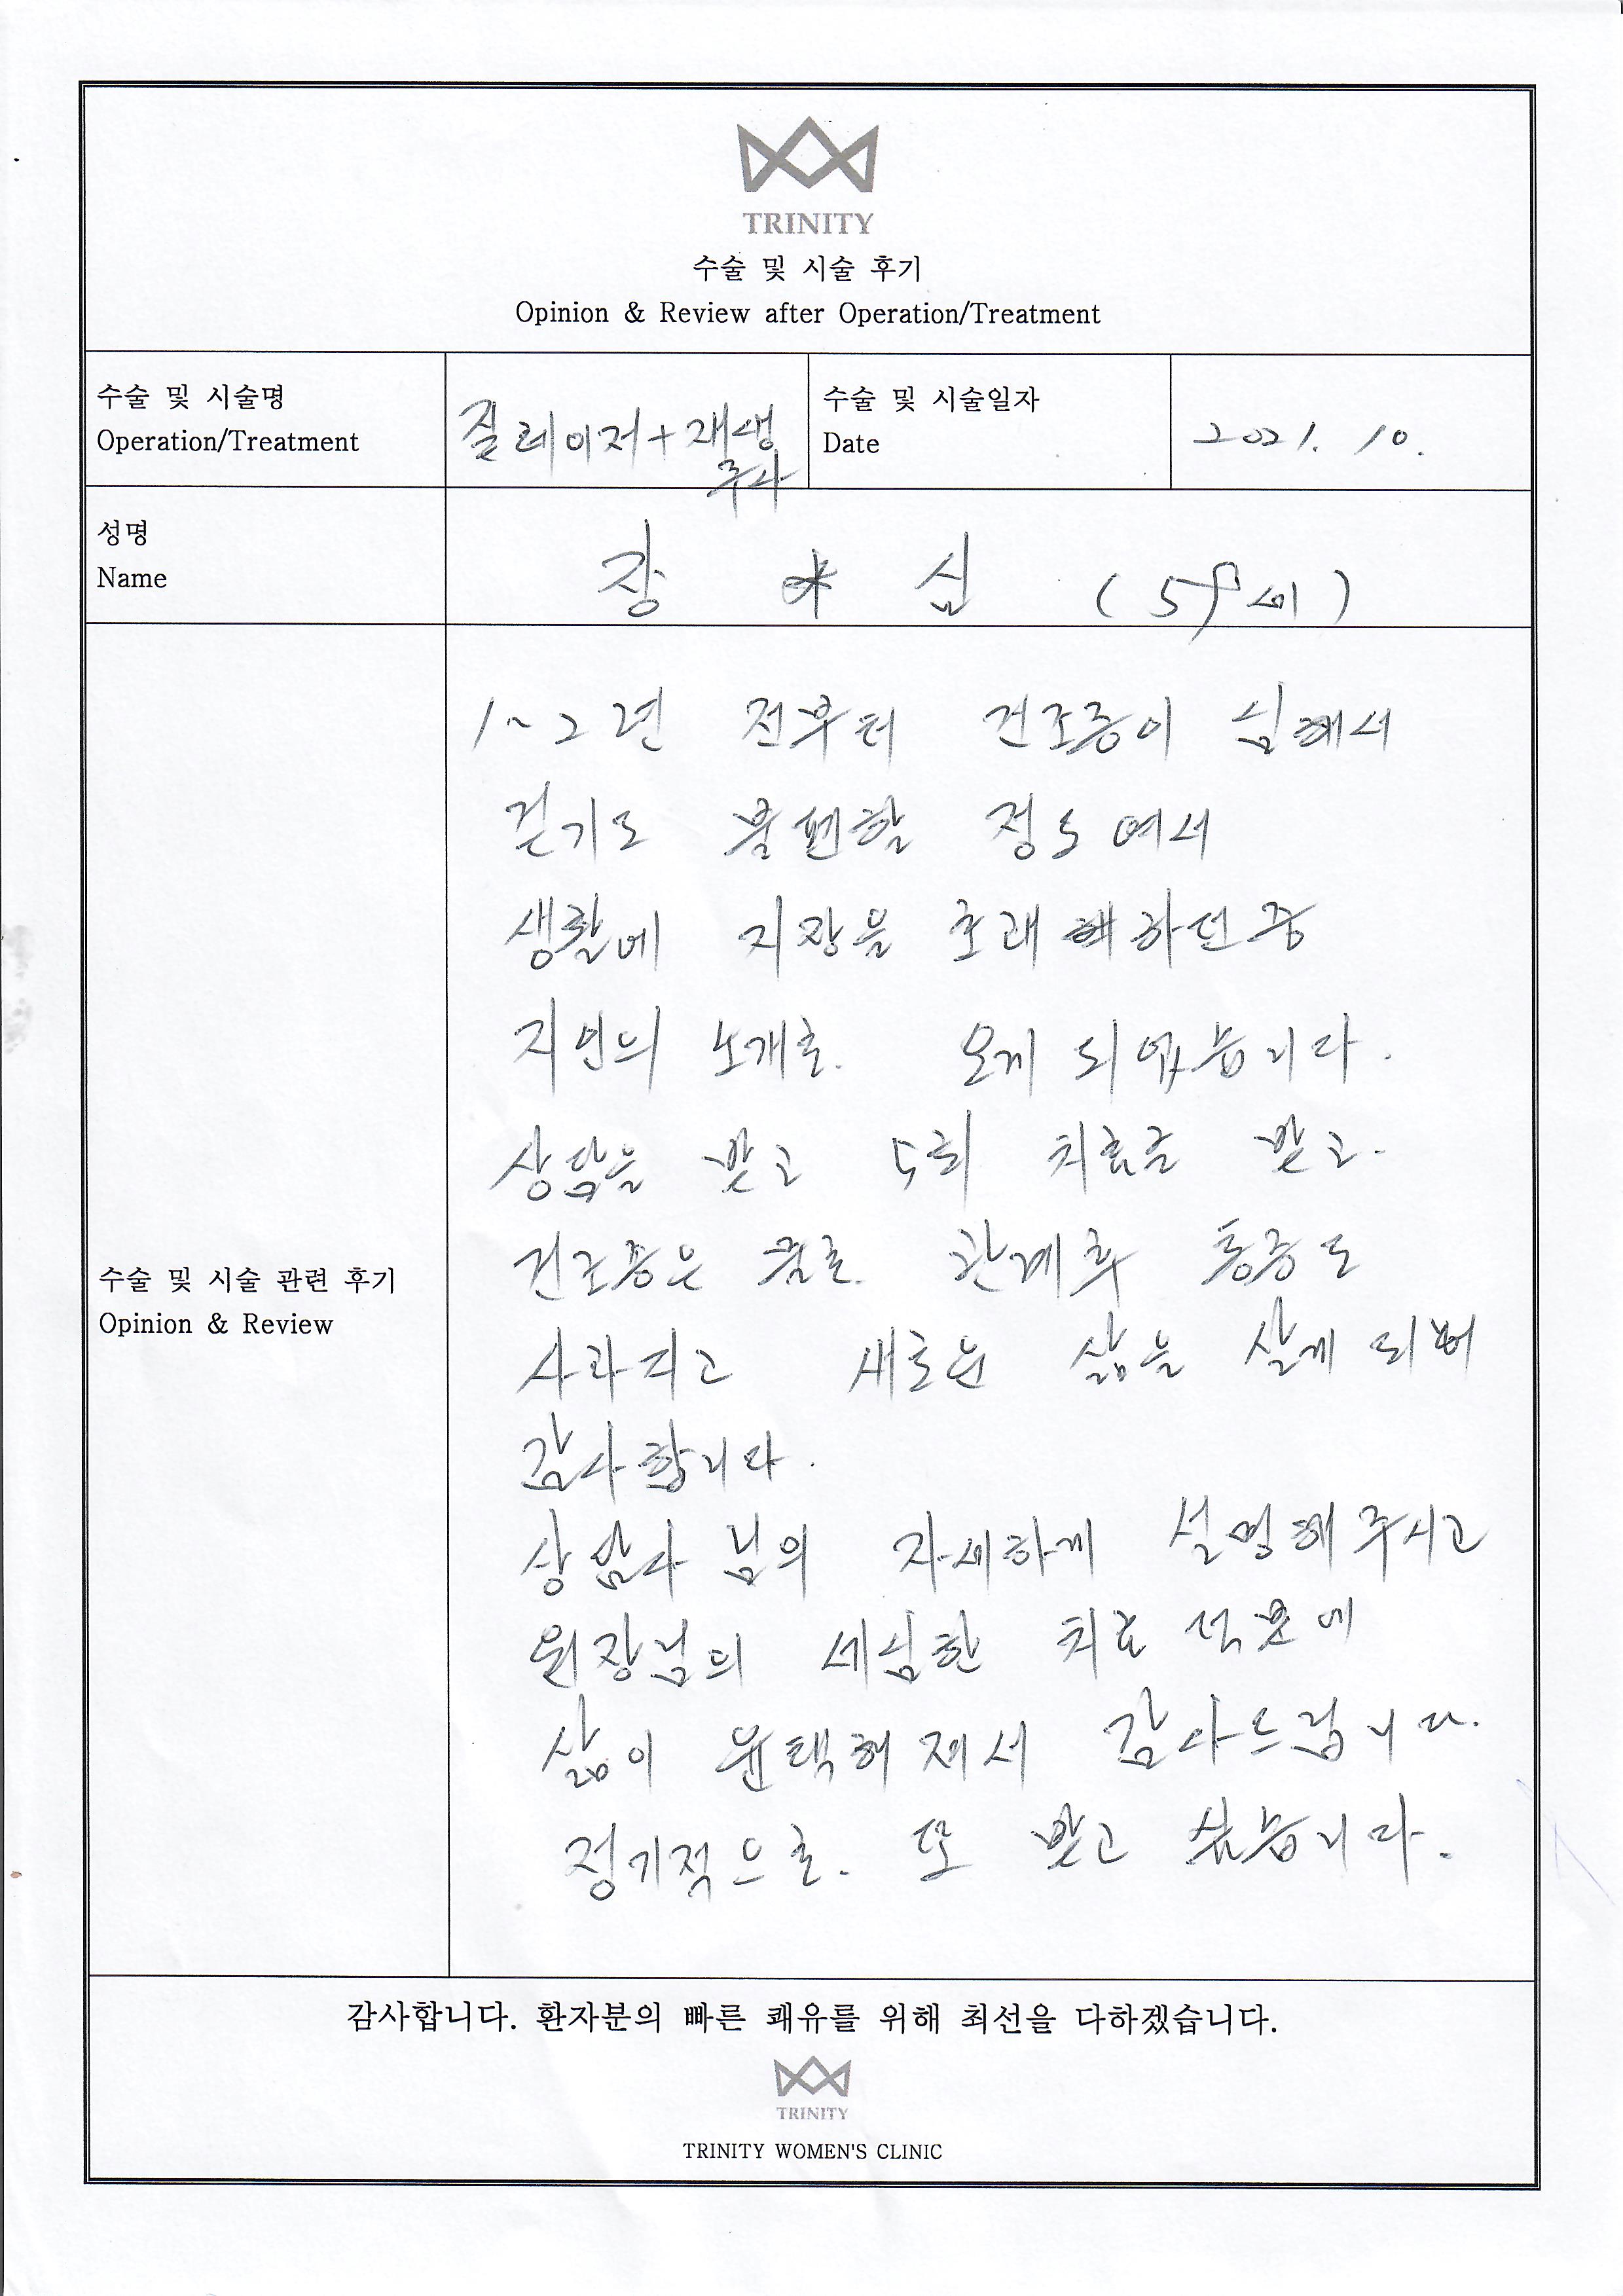 TRINITY
수술 및 시술 후기
Opinion & Review after Operation/Treatment
수술 및 시술명
Operation/Treatment
질레이저+재생
주사
수술 및 시술일자
Date
2021. 10.
성명
Name
장 * 심 (59세)
1~2년 전부터 건조증이 심해서
걷기도 불편할 정도여서
생활에 지장을 초래하던중
지인의 소개로. 오게 되었습니다.
상담을 받고 5회 치료를 받고.
건조증은 물론. 관계후 통증도
사라지고 새로운 삶을 살게 되어
감사합니다.
상담사님의 자세하게 설명해주시고
원장님의 세심한 치료 덕분에
삶이 윤택해져서 감사드립니다.
정기적으로. 또 받고 싶습니다.
수술 및 시술 관련 후기
Opinion & Review
감사합니다. 환자분의 빠른 쾌유를 위해 최선을 다하겠습니다.
TRINITY
TRINITY WOMEN'S CLINIC